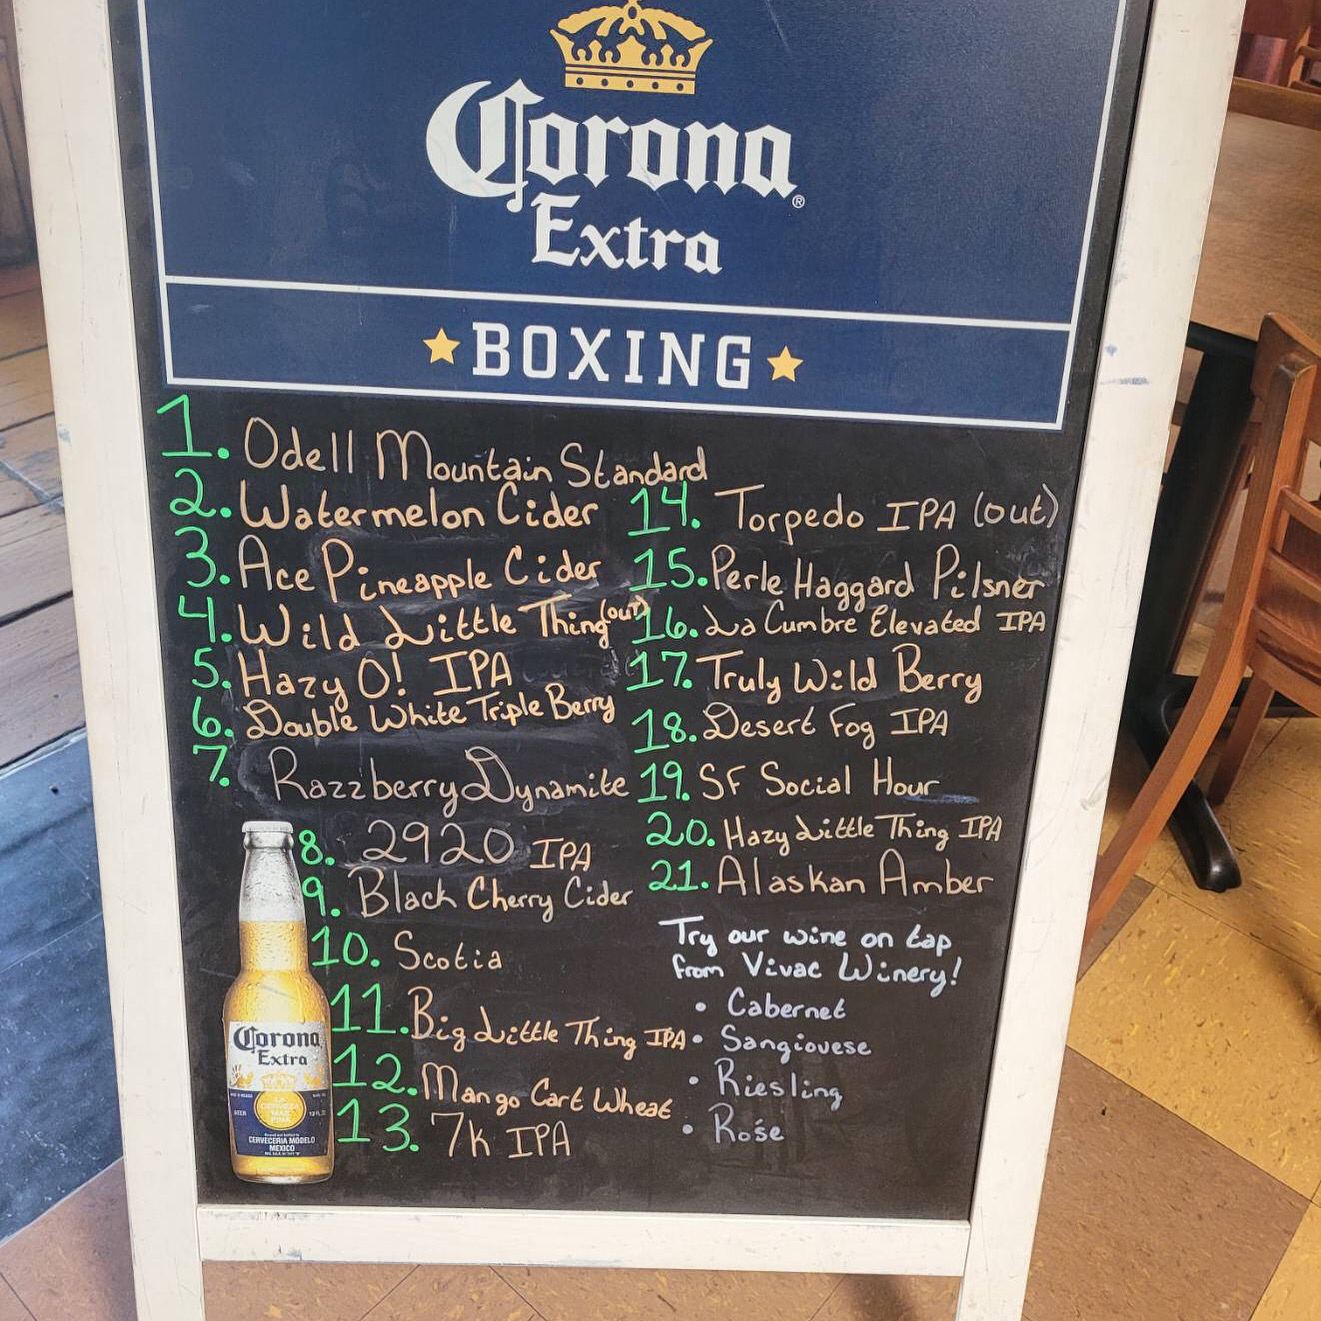 Corona
Extra
BOXING
1. Odell Mountain Standard
2. Watermelon Cider
3. Ace Pineapple Cider
4. Wild Little Thing (out)
5. Hazy O! IPA
6. Double White Triple Berry
7. Razzberry Dynamite
8. 2920 IPA
9. Black Cherry Cider
10. Scotia
11. Big Little Thing IPA
12. Mango Cart Wheat
13. 7k IPA
14. Torpedo IPA (out)
15. Perle Haggard Pilsner
16. La Cumbre Elevated IPA
17. Truly Wild Berry
18. Desert Fog IPA
19. SF Social Hour
20. Hazy Little Thing IPA
21. Alaskan Amber
Try our wine on tap
from Vivac Winery!
• Cabernet
• Sangiovese
• Riesling
• Rośe
Corona
Extra
LA
CERVEZA
MAS
FINA
BEER
CERVECERIA MODELO
MEXICO